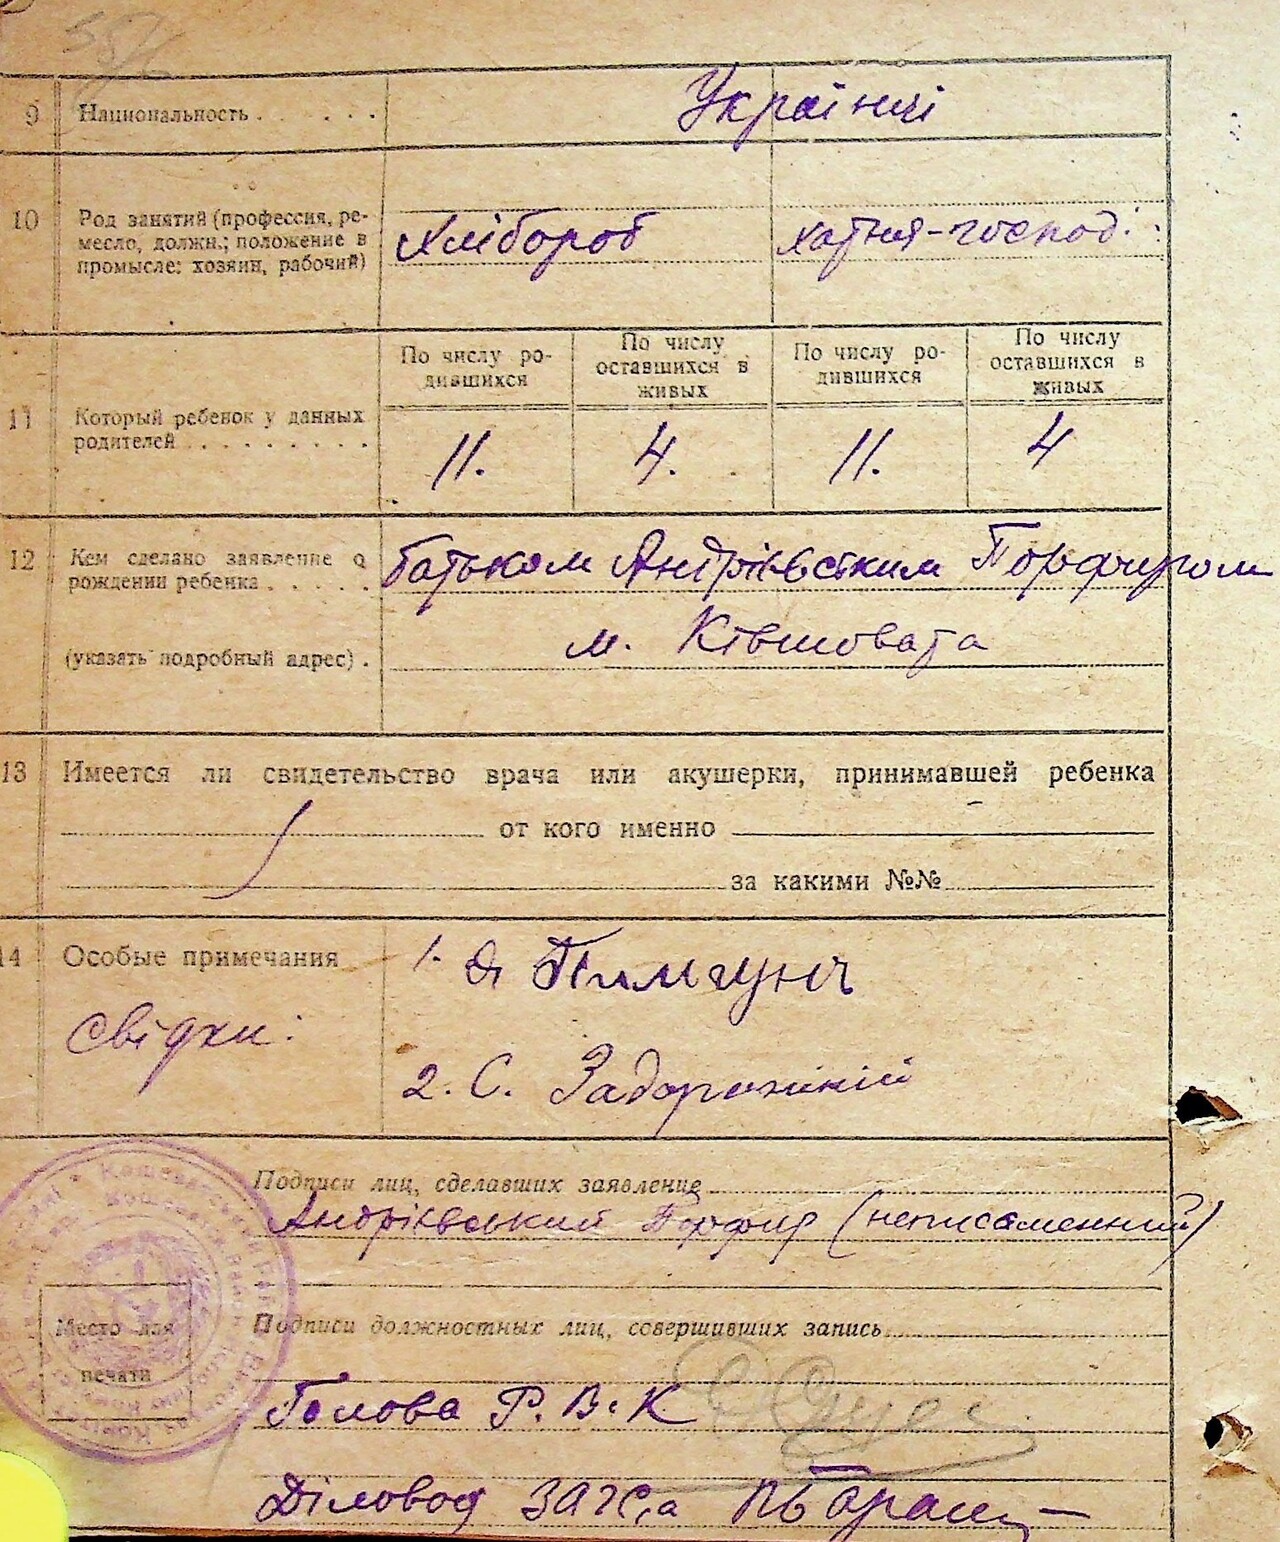 9 Национальность . . . . . Українці
10 Род занятий (профессия, ре-
месло, должн.; положение в
промысле: хозяин, рабочий)
Хлібороб хатня-господ.
По числу ро-
дившихся
По числу
оставшихся в
живых
По числу ро-
дившихся
По числу
оставшихся в
живых
11 Который ребенок у данных
родителей . . . . . . . . .
11. 4. 11. 4
12 Кем сделано заявление о
рождении ребенка . . . . .
батьком Андрієвським Порфиром
(указать подробный адрес) .
м. Ківшовата
13 Имеется ли свидетельство врача или акушерки, принимавшей ребенка
от кого именно
за какими №№
14 Особые примечания
1.
Свідки:
2. С. Задорожній
Подписи лиц, сделавших заявление
Андрієвський Порфир (неписьменний)
Подписи должностных лиц, совершивших запись
Место для
печати
Голова Р.В.К
Діловод ЗАГС,а